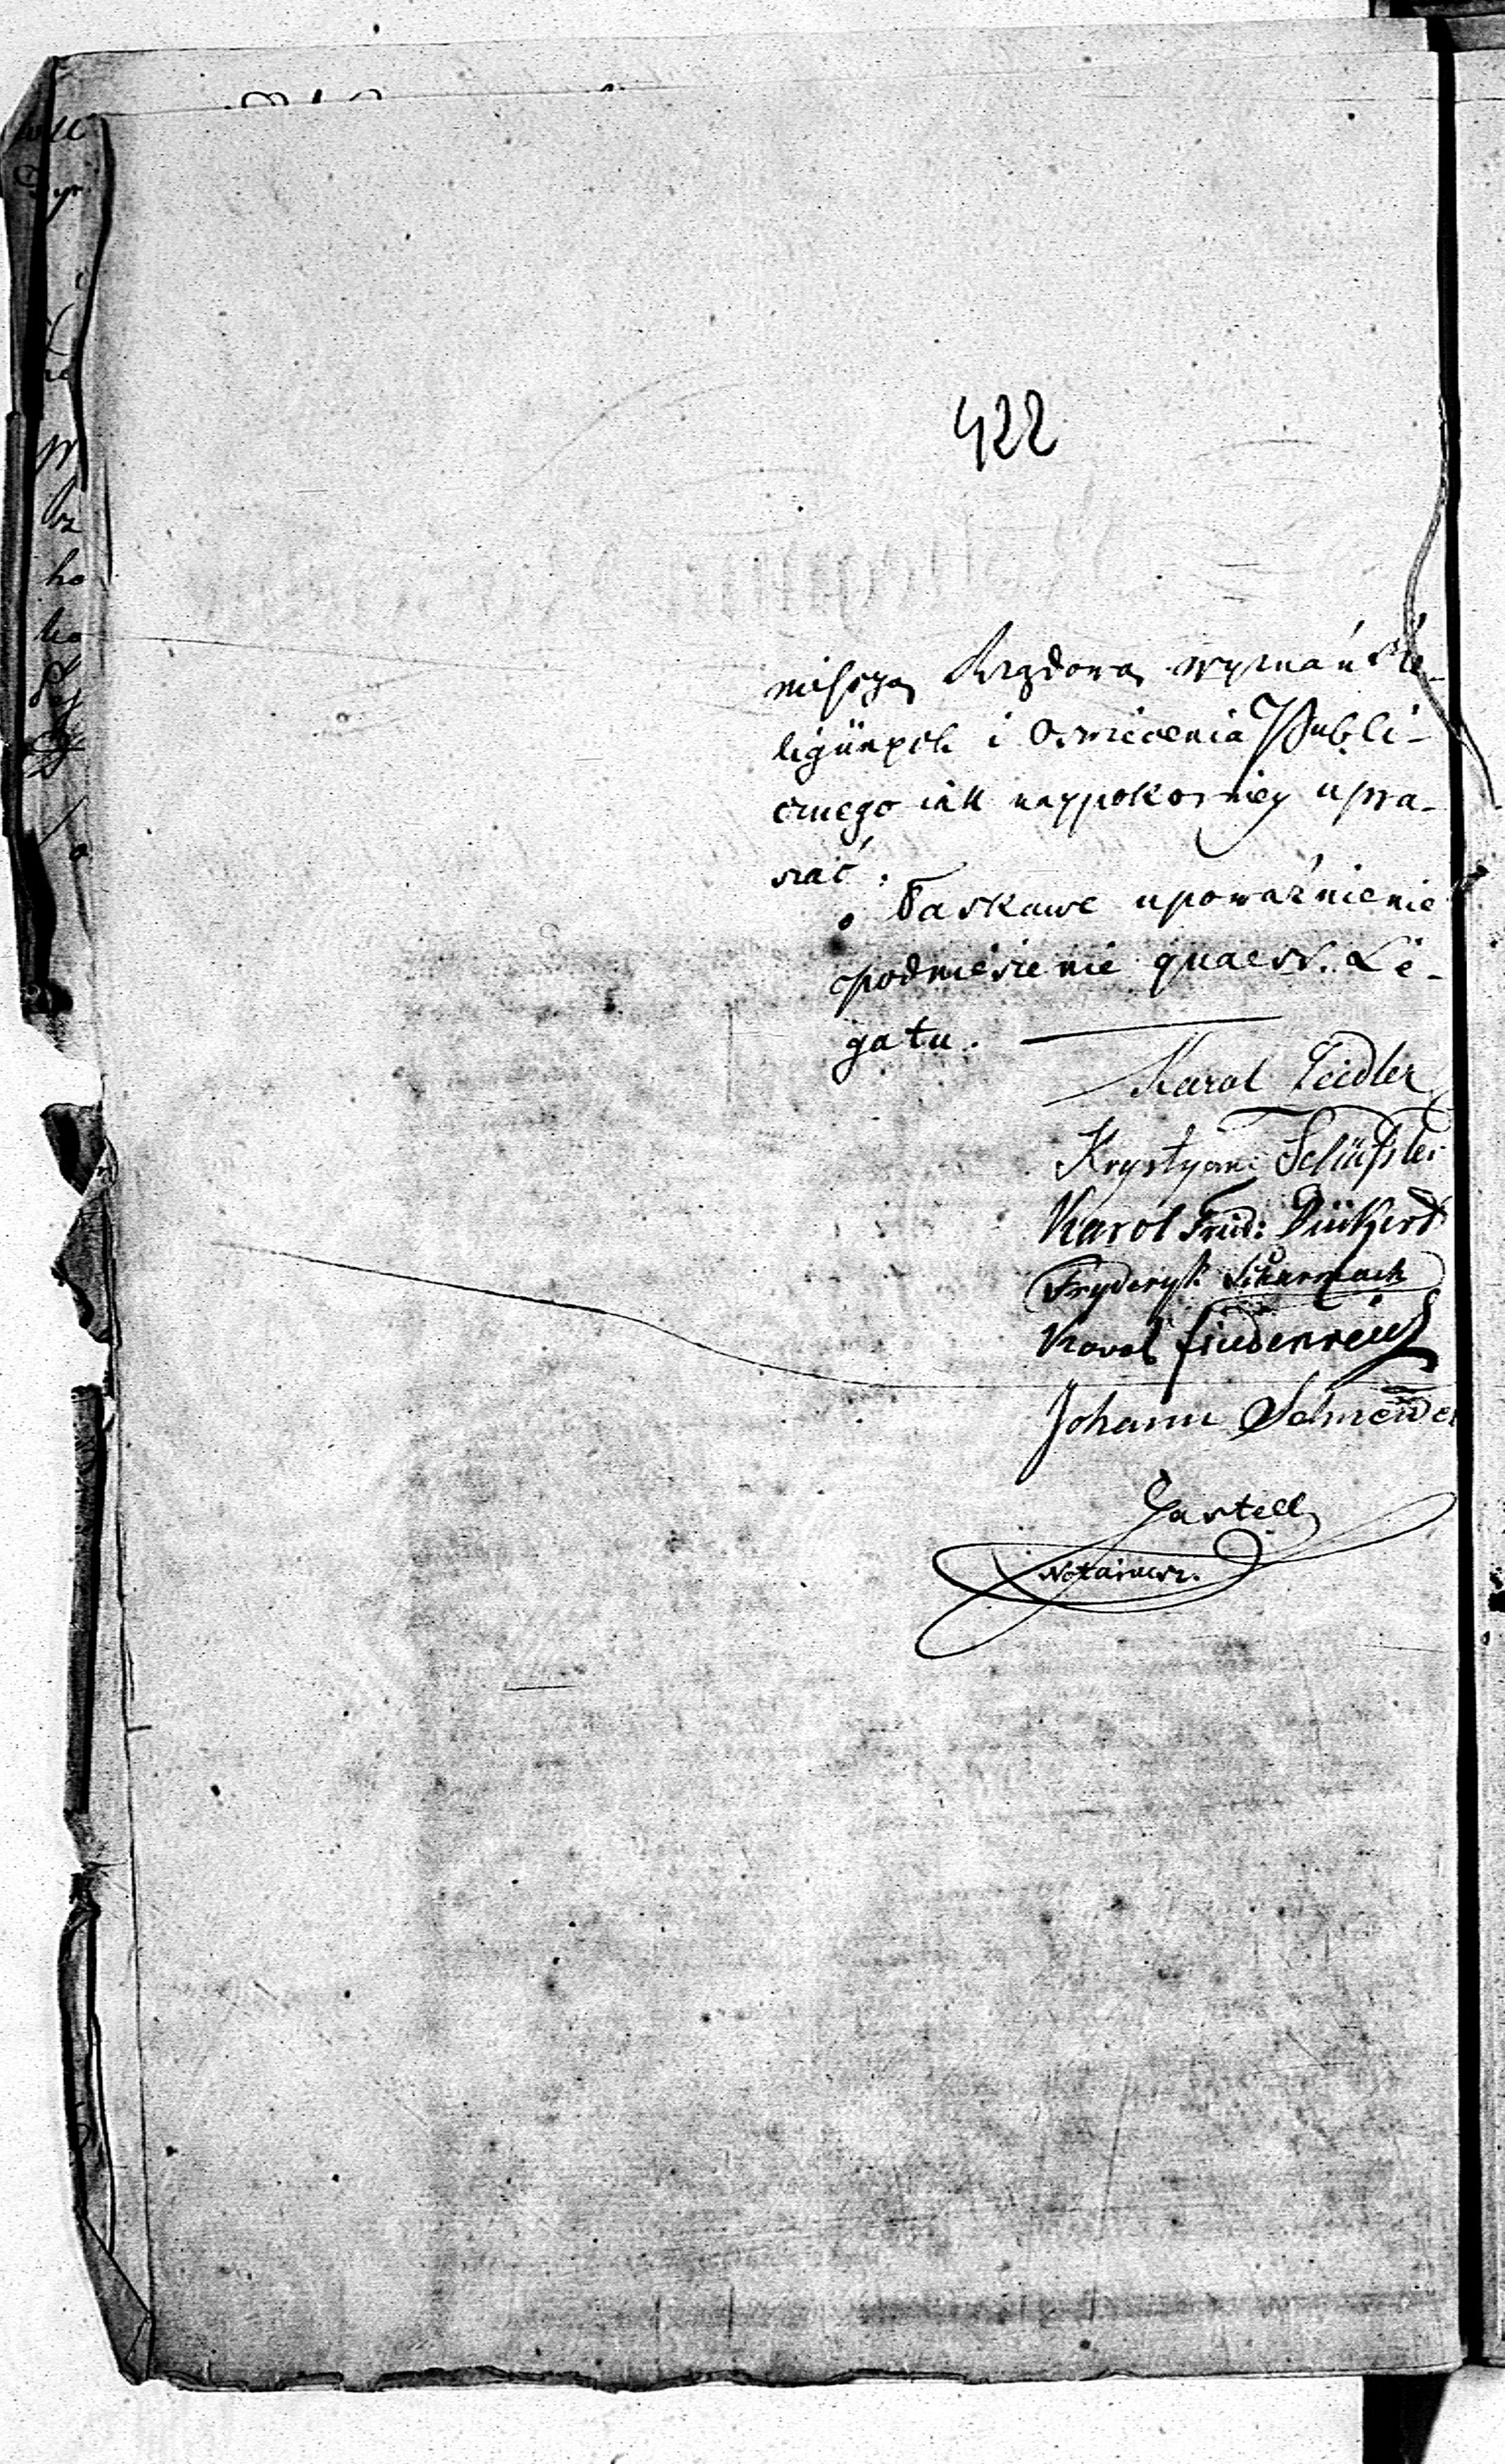 422
missyą Rządową wyznań Re-
ligiinych i Oswiecenia Publi-
cznego iak naypokorniey upra-
szać.
o Łaskawe upoważnienie
podniesienie quaest. Le-
gatu.
Karol
Krystyan Schüssler
Karol Frid:
Fryderyk
Karol Friedenreich
Johann Schneider
Gastell
Notariusz.